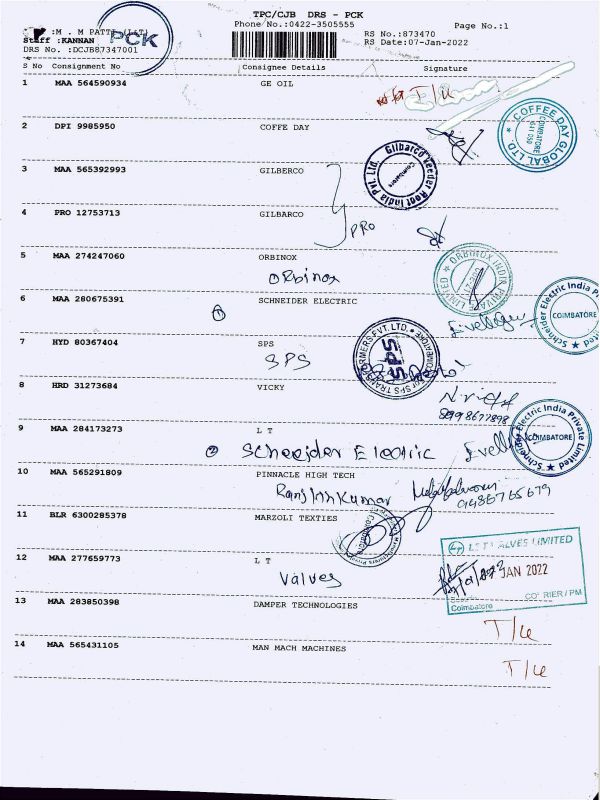 TPC/CJB DRS - PCK
Phone No.:0422-3505555
Page No.:1
:M . M PATTI (L&T)
Staff :KANNAN
DRS No. :DCJB87347001
PCK
RS No.:873470
RS Date:07-Jan-2022
S No Consignment No Consignee Details Signature
1 MAA 564590934 GE OIL T/L
2 DPI 9985950 COFFE DAY
COFFEE DAY GLOBAL LTD. COIMBATORE
3 MAA 565392993 GILBERCO
Gilbarco Veeder Root India Pvt. Ltd.
4 PRO 12753713 GILBARCO
PRO
5 MAA 274247060 ORBINOX
Orbinox
ORBINOX INDIA PRIVATE LIMITED
6 MAA 280675391 SCHNEIDER ELECTRIC
Schneider Electric India Private Limited COIMBATORE
7 HYD 80367404 SPS
SPS
For SPS TRANSFORMERS PVT. LTD. SPS
8 HRD 31273684 VICKY
9 MAA 284173273 L T
Schneider Electric
Schneider Electric India Private Limited COIMBATORE
10 MAA 565291809 PINNACLE HIGH TECH
Ranjith Kumar
11 BLR 6300285378 MARZOLI TEXTIES
12 MAA 277659773 L T
Valves
L&T VALVES LIMITED
JAN 2022
COURIER / PM
Coimbatore
13 MAA 283850398 DAMPER TECHNOLOGIES
T/L
14 MAA 565431105 MAN MACH MACHINES
T/L